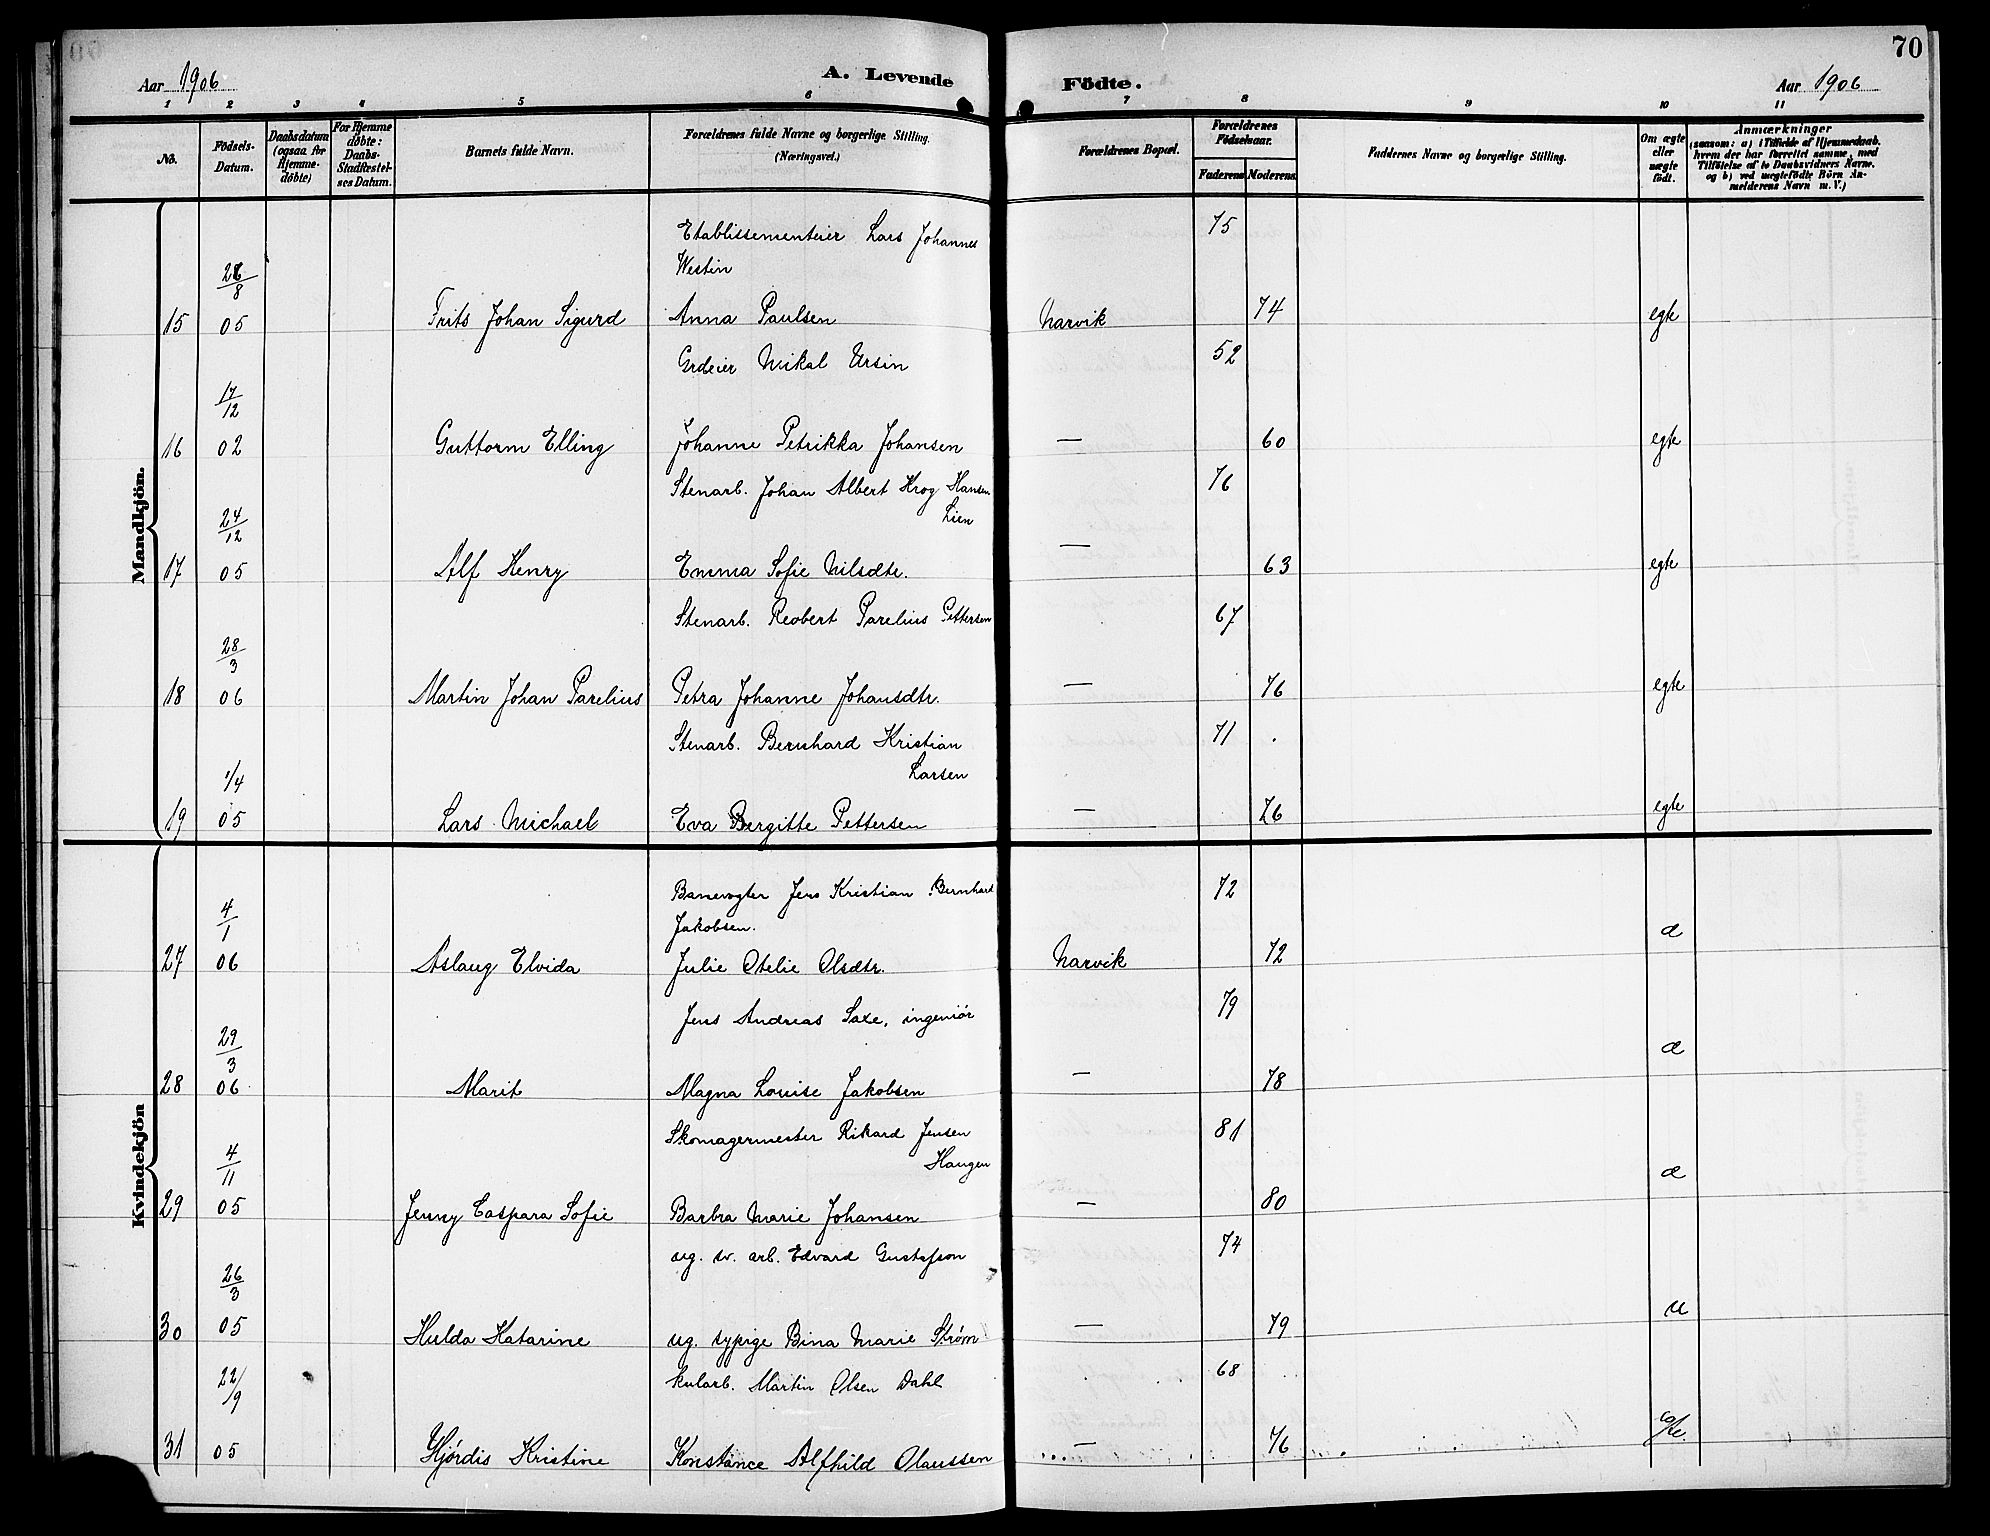 70
Aar 1906
A. Levende Födte.
Aar 1906
1 2 3 4 5 6 7 8 9 10 11
No.
Födsels-Datum.
Daabsdatum (ogsaa for Hjemme-döbte)
For Hjemme döbte: Daabs-Stadfæstel-ses Datum.
Barnets fulde Navn.
Forældrenes fulde Navne og borgerlige Stilling.
(Næringsvei.)
Forældrenes Bopæl.
Forældrenes Födselsaar.
Faderens Moderens
Faddernes Navne og borgerlige Stilling.
Om ægte eller uægte födt.
Anmærkninger
(saasom: a) i Tilfælde af Hjemmedaab,
hvem der har forrettet samme, med
Tilföielse af to Daabsvidners Navne.
og b) ved uægtefödte Börn An-
melderens Navn m. V.)
Mandkjön.
Etablissementeier Lars Johannes 75
Westin
26/8
15 05 Frits Johan Sigurd Anna Paulsen Narvik 74 egte
Grdeier Mikal Ursin 52
17/12
16 02 Guttorm Elling Johanne Petrikka Johansen — 60 egte
Stenarb. Johan Albert Krog Hansen 76
Lien
24/12
17 05 Alf Henry Emma Sofie Nilsdtr. — 63 egte
Stenarb. Reobert Parelius Pettersen 67
28/3
18 06 Martin Johan Parelius Petra Johanne Johansdtr. — 76 egte
Stenarb. Bernhard Kristian 71
Larsen
1/4
19 05 Lars Michael Eva Bergitte Pettersen — 76 egte
Kvindekjön
Banevogter Jens Kristian Bernhard 72
Jakobsen.
4/1
27 06 Aslaug Elvida Julie Otelie Olsdtr. Narvik 72 æ
Jens Andreas Saxe, ingeniør 79
29/3
28 06 Marit Magna Louise Jakobsen — 78 æ
Skomagermester Rikard Jensen 81
Haugen
4/11
29 05 Jenny Caspara Sofie Barbra Marie Johansen — 80 æ
ug. sv. arb. Edvard Gustafson 74
26/3
30 05 Hulda Katarine ug. sypige Bina Marie Strøm — 79 u
kularb. Martin Olsen Dahl 68
22/9
31 05 Hjørdis Kristine Konstance Alfhild Olaussen — 76 egte